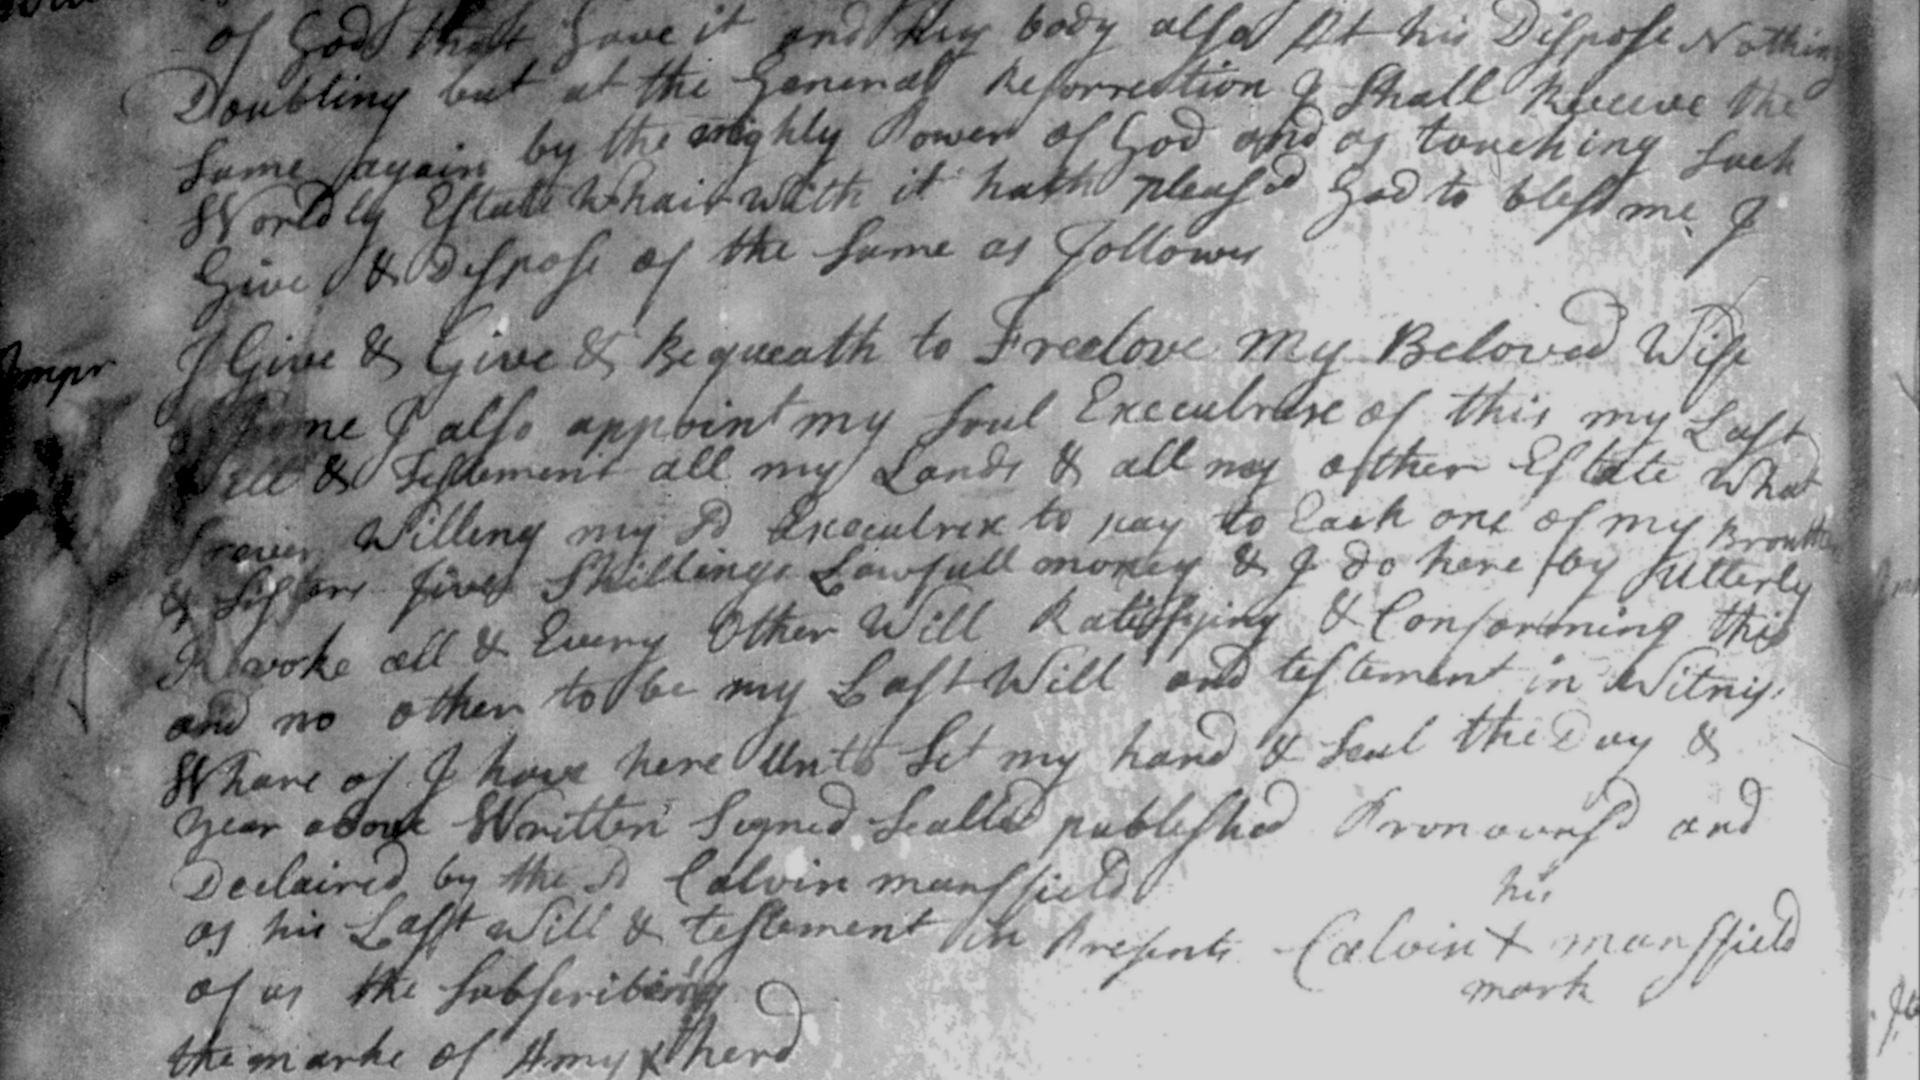 of God that Gave it and my body also At his Dispose Nothing
Doubting but at the General Resorrection I Shall Receive the
same again by the mighty Power of God and as touching such
Worldly Estate Whairwith it hath pleasd God to bless me I
Give & Dispose of the same as follows
Impr
I Give & Give & Bequeath to Freelove my Beloved Wife
I also appoint my Soul Executrixe of this my Last
Will & Testement all my Lands & all my other Estate What
soever Willing my sd Executrix to pay to Each one of my
& Sisters five Shillings Lawfull money & I do here by Utterly
Revoke all & Every Other Will Ratifying & Conforming this
and no other to be my Last Will and testement in Witness
Whare of I have here Unto Set my hand & Seal the Day &
year above Written Signed Sealled published Pronounsd and
Declaired by the sd Calvin mansfield
as his Last Will & testement in Presents
of us the Subscribing
his
Calvin X mansfield
mark
the marke of Amy X herd